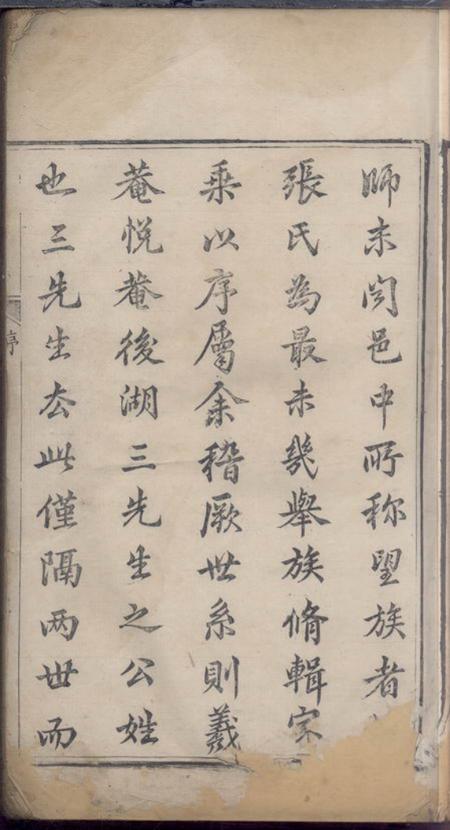 師未閱邑中所称望族者
張氏為最未幾舉族脩輯家
乗以序屬余稽厥世系則義
菴悅菴後湖三先生之公姓
也三先生去此僅隔两世而
序